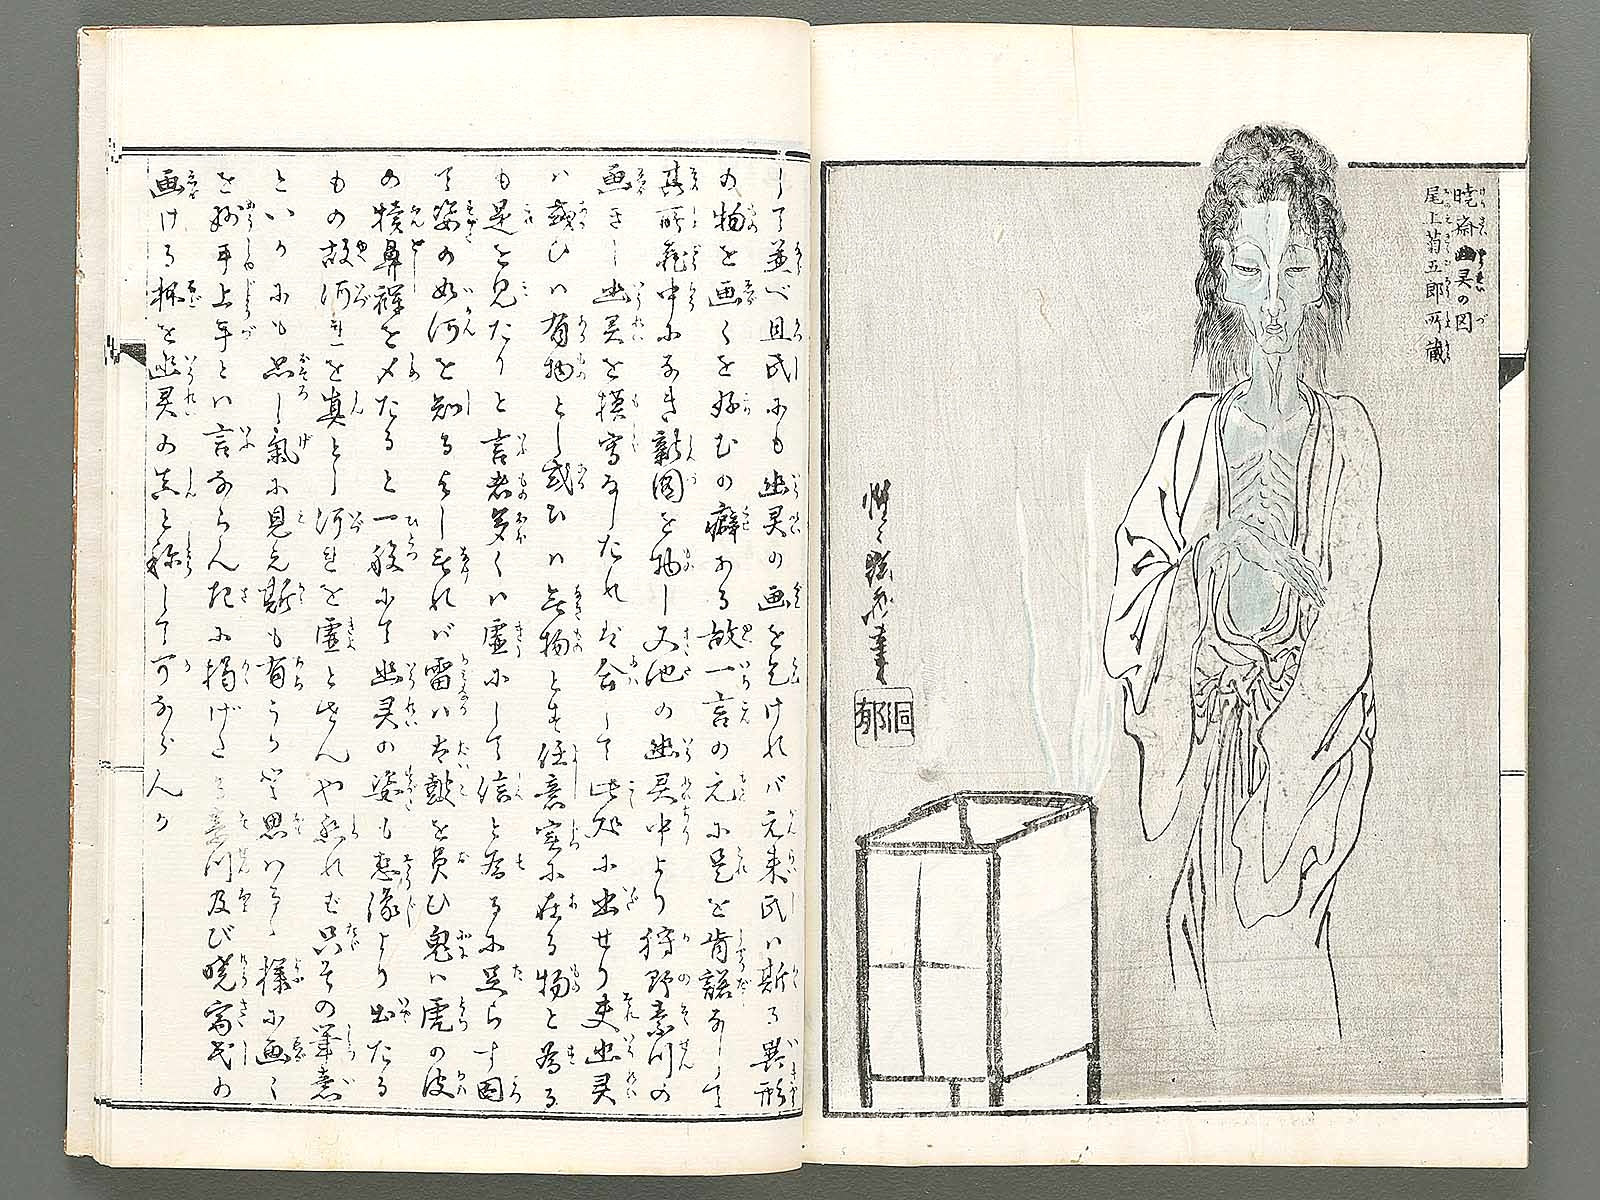 暁斎幽㚑の図
尾上菊五郎所蔵
惺々暁斎筆
洞郁
して並べ且氏にも幽㚑の画を乞けれバ元来氏ハ斯る異形
の物を画くを好むの癖ある故一言の元に是を肯諾なして
其所蔵中になき新図を物し又他の幽㚑中より狩野素川の
画きし幽㚑を模写なしたれバ合して此処に出せり夫幽㚑
ハ或ひハ有物とし或ひハ無物とせ任意実に在る物と為る
も是を見たりと言者多くハ虚にして信と為るに足らず図
て姿の如何を知るよし無れバ雷ハ太鼓を負ひ鬼ハ虎の皮
の犢鼻褌を〆たると一般にて幽㚑の姿も悉縁より出たる
もの故何れを真とし何れを虚とせんや然れど只其の筆意
といかにも恐し気に見え斯も有うかと思ハるゝ様に画く
を妙手上手とハ言ならん扨に掲げたる素川及び暁斎氏の
画ける杯を幽㚑の真と称して可ならんか